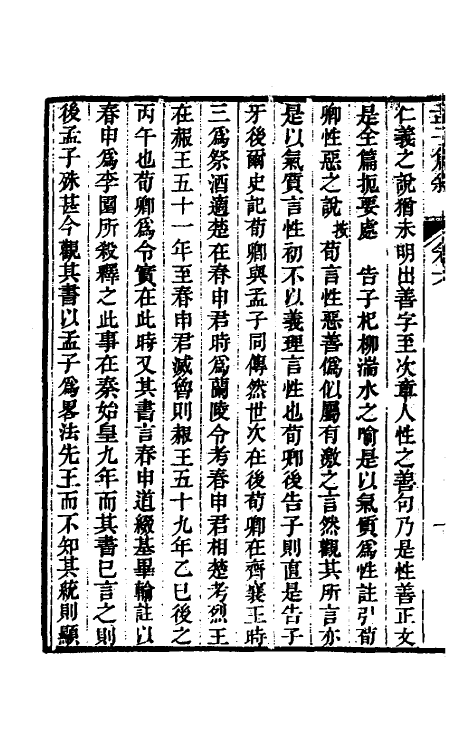 仁義之說猶未明出善字至次章人性之善句乃是性善正文
是全篇扼要處　告子杞柳湍水之喻是以氣質爲性註引荀
卿性惡之說按荀言性惡善僞似屬有激之言然觀其所言亦
是以氣質言性初不以義理言性也荀卿後告子則直是告子
牙後爾史記荀卿與孟子同傳然世次在後荀卿在齊襄王時
三爲祭酒適楚在春申君時爲蘭陵令考春申君相楚考烈王
在赧王五十一年至春申君滅魯則赧王五十九年乙巳後之
丙午也荀卿爲令實在此時又其書言春申道綴基畢輸註以
春申爲李園所殺釋之此事在秦始皇九年而其書已言之則
後孟子殊甚今觀其書以孟子爲畧法先王而不知其統則顯